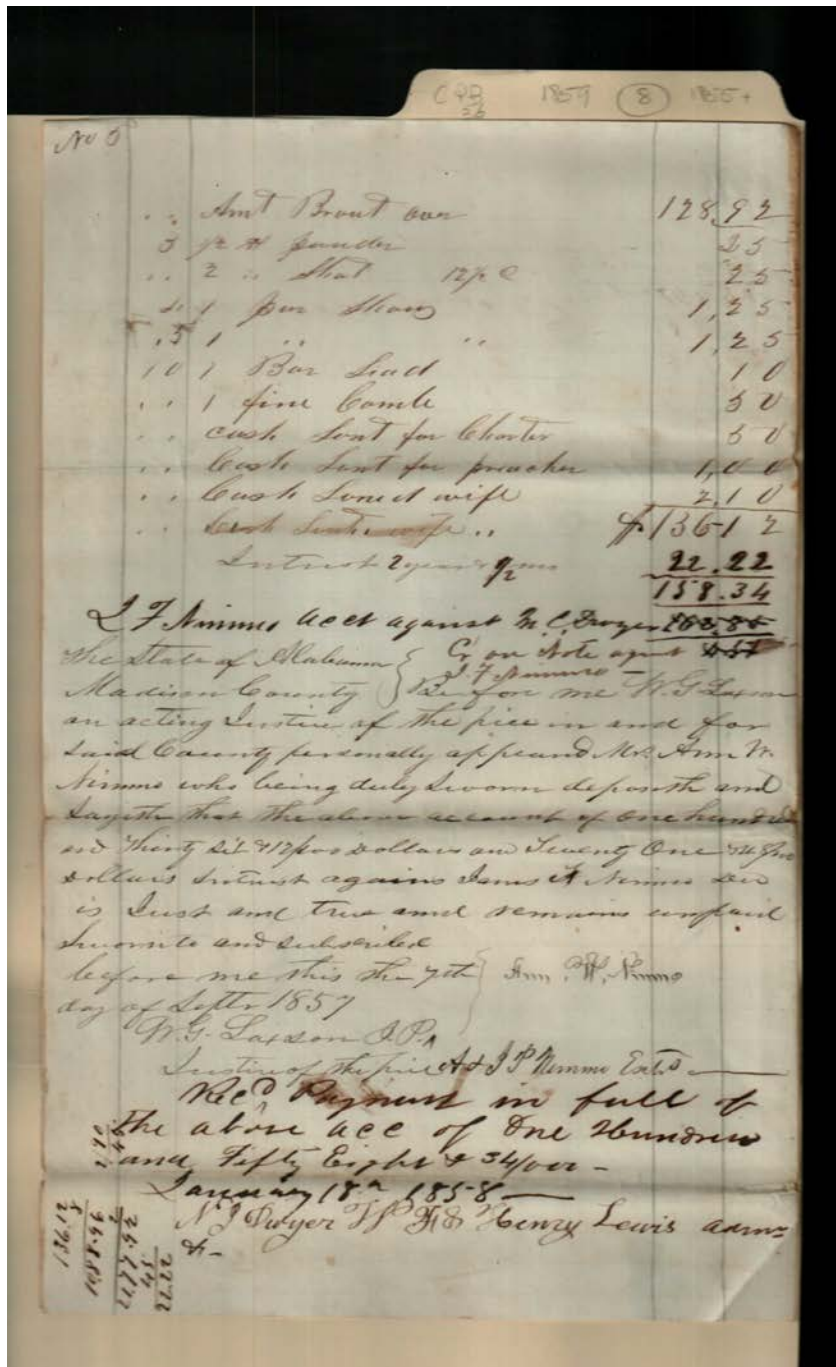 CPB 1859 (8) 1855+
26
No 5
" Amt Brout over 128.92
3 1/2 # pouder 25
" 2 " Shot 12 1/2 C 25
4 1 par Shous 1,25
5 1 " " 1,25
10 1 Bar Lead 10
" 1 fine Comb 50
" cash Sent for Charter 50
" Cash Sent for preacher 1,00
" Cash Loned wife 2,10
" Cash wife " $13612
Intrust 2 years 22.22
158.34
J F Nimmo acct against M. C. Dwyer
The State of Alabama Cr on Note agst
J. F. Nimmo
Madison County Before me W. G. Laxson
an acting Justice of the piece in and for
Said County personally appeard Mrs Ann W.
Nimmo who being duly Sworn deposith and
Sayeth that the above account of one hundred
and thirty Six & 12/100 Dollars and Twenty One
Dollars Intrust agains James F Nimmo Dec
is Just and true and remains unpaid
Sworn to and Subscribed
before me this the 7th Ann W. Nimmo
day of Septr 1857
W. G. Laxson J. P.
Justice of the piece A & J P Nimmo Exts
Recd Payment in full of
The above acc of One Hundred
and Fifty Eight & 34/100 -
January 18th 1858
N J Dwyer & Henry Lewis admr
&-
22 22